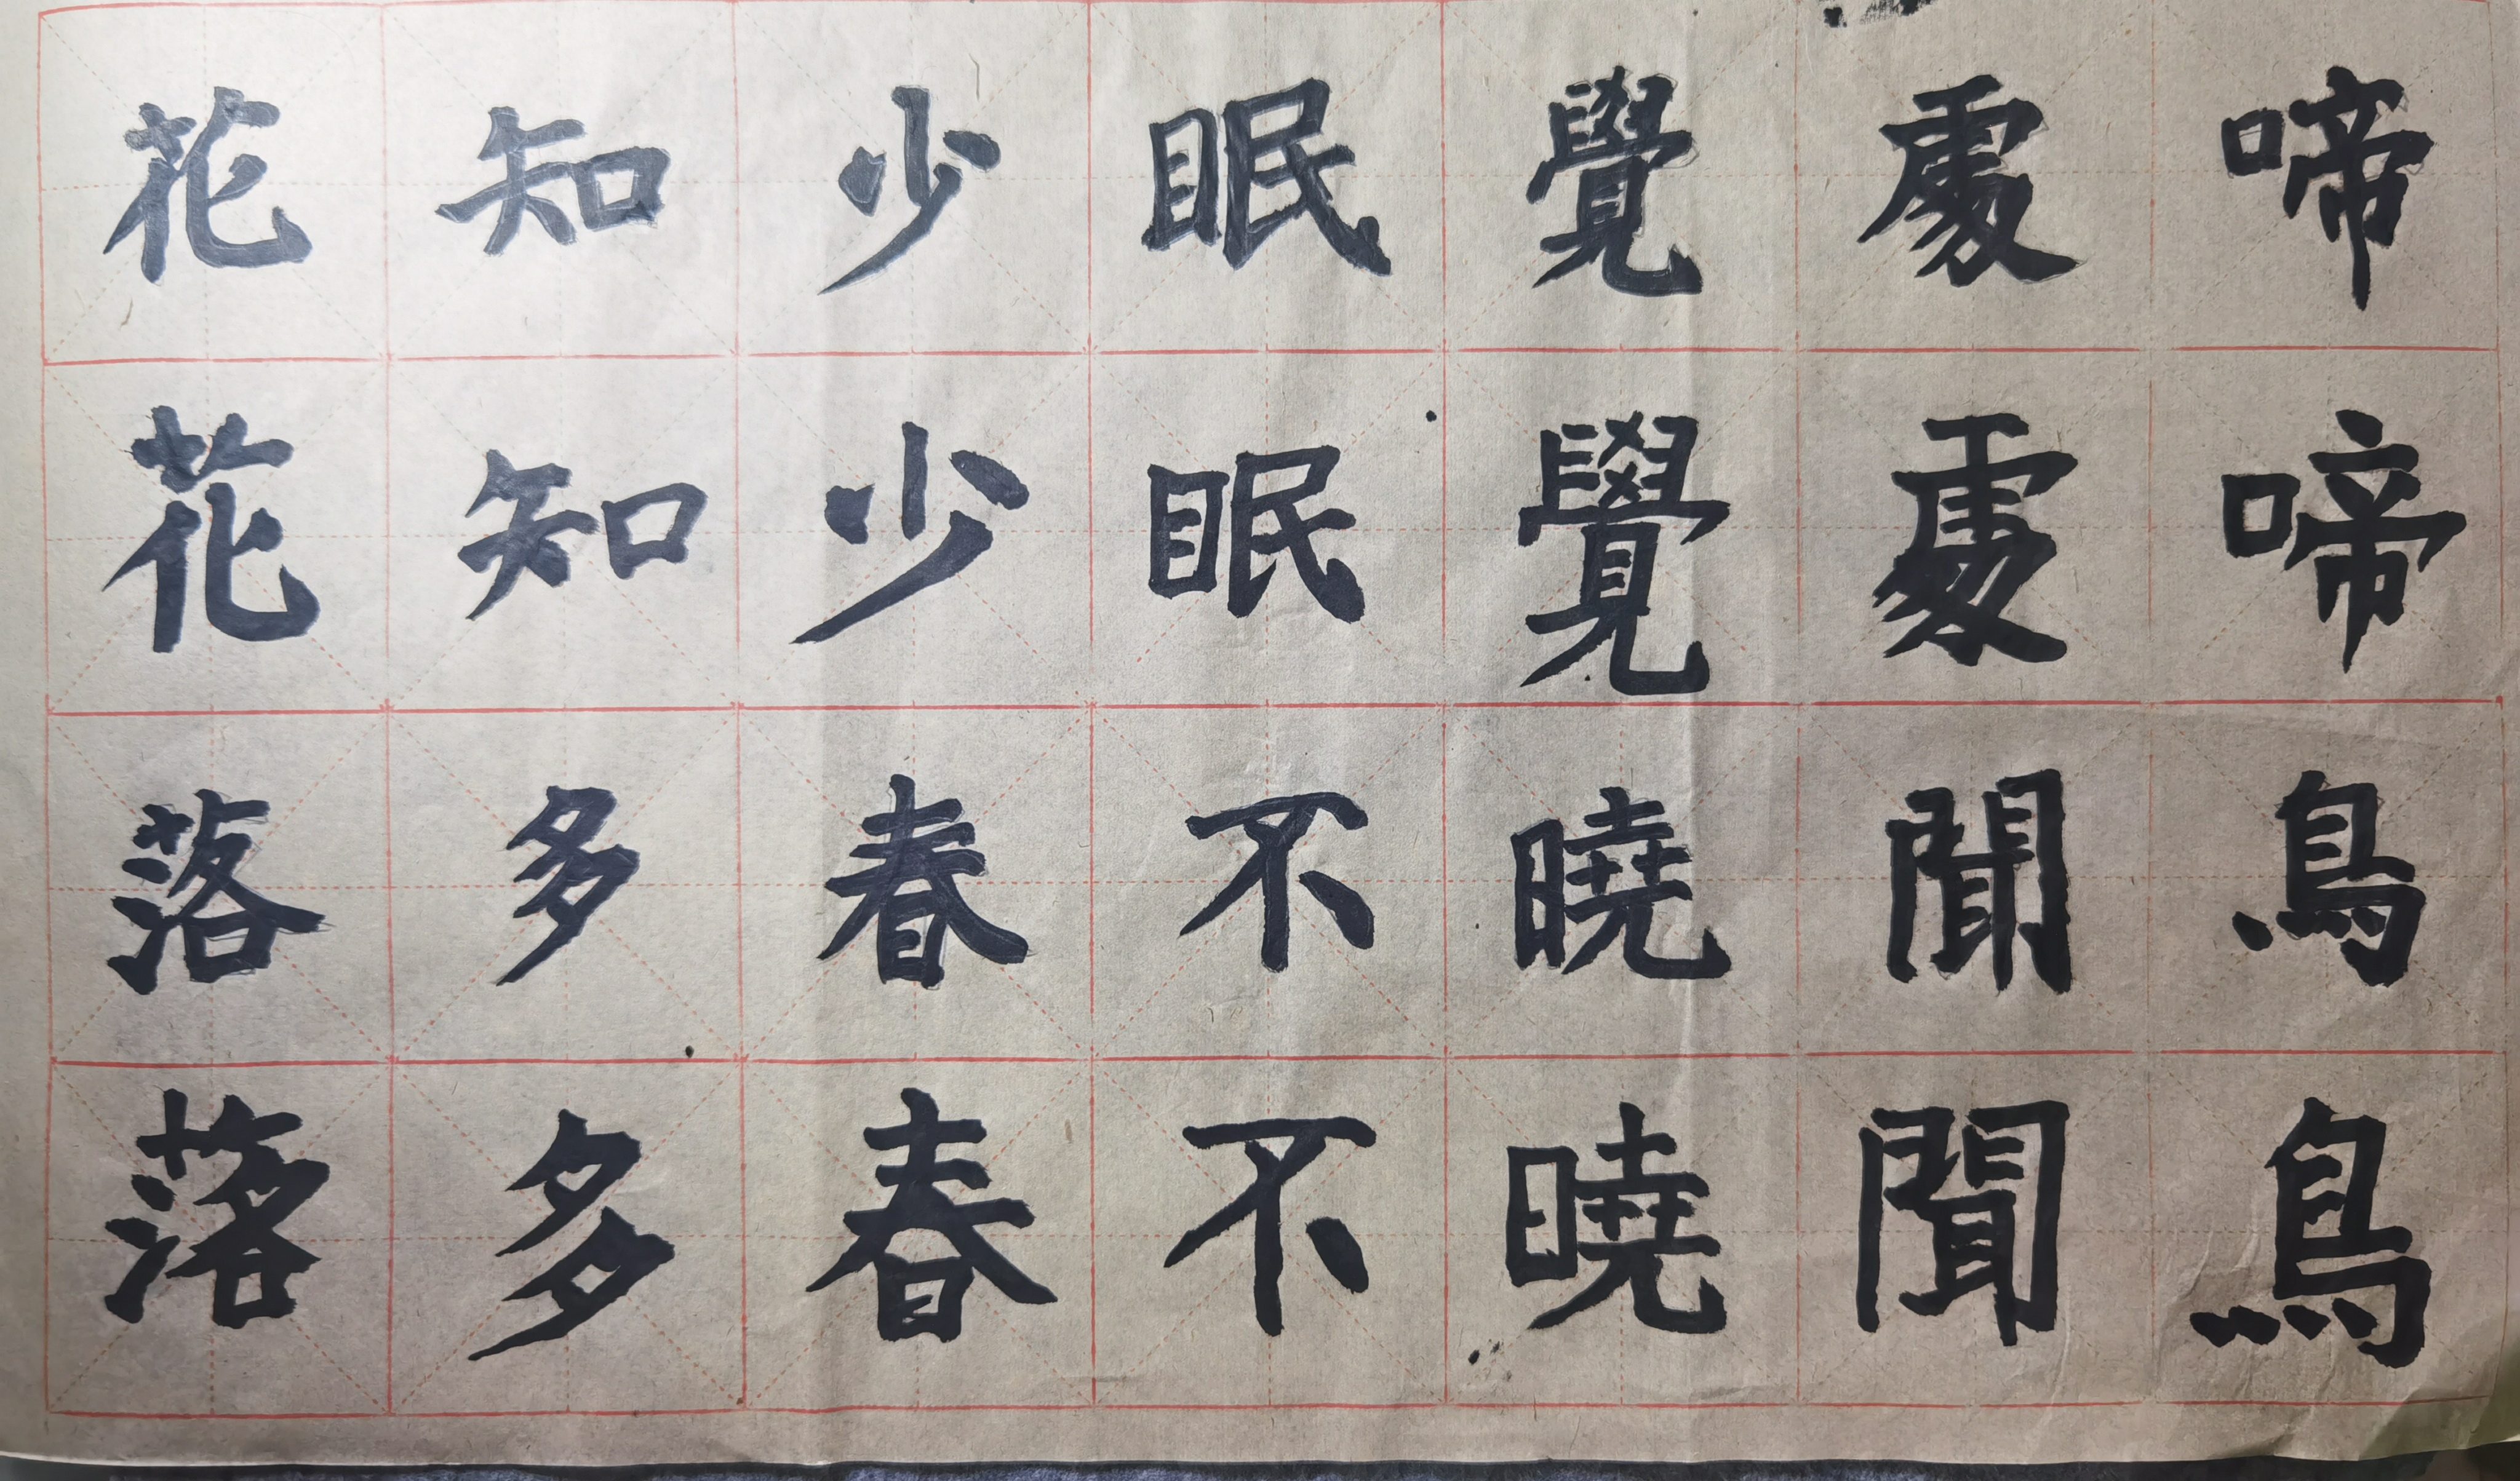 花花落落
知知多多
少少春春
眠眠不不
覺覺曉曉
處處聞聞
啼啼鳥鳥